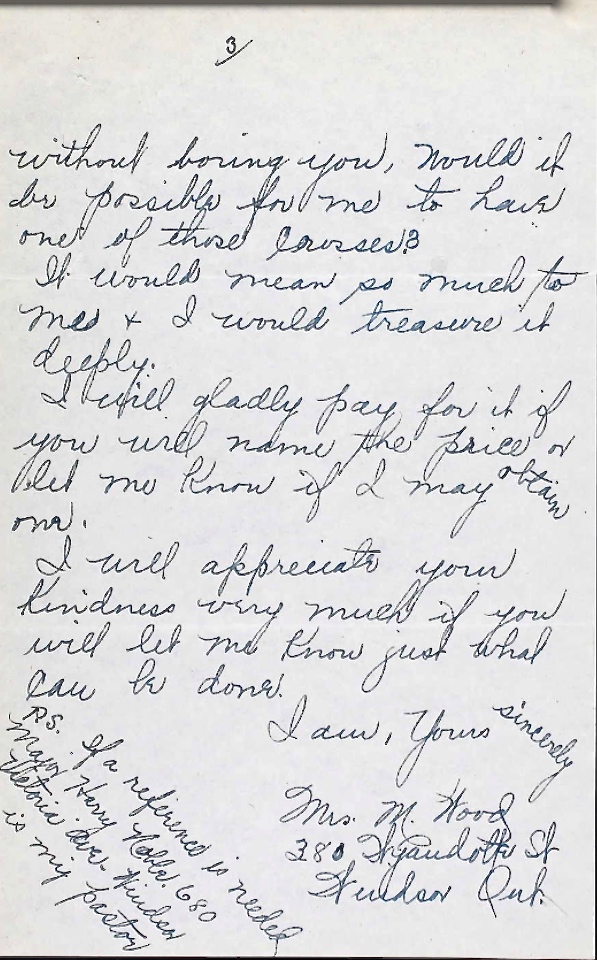 3
without boring you, Would it
be possible for me to have
one of those Crosses?
It would mean so much to
me & I would treasure it
deeply.
I will gladly pay for it if
you will name the price or
let me know if I may obtain
one.
I will appreciate your
kindness very much if you
will let me know just what
can be done.
I am, Yours sincerely
Mrs. M. Wood
380 Wyandotte St
Windsor Ont.
P.S. If a reference is needed
Major Harry Noble. 680
Victoria Ave. Windsor
is my pastor